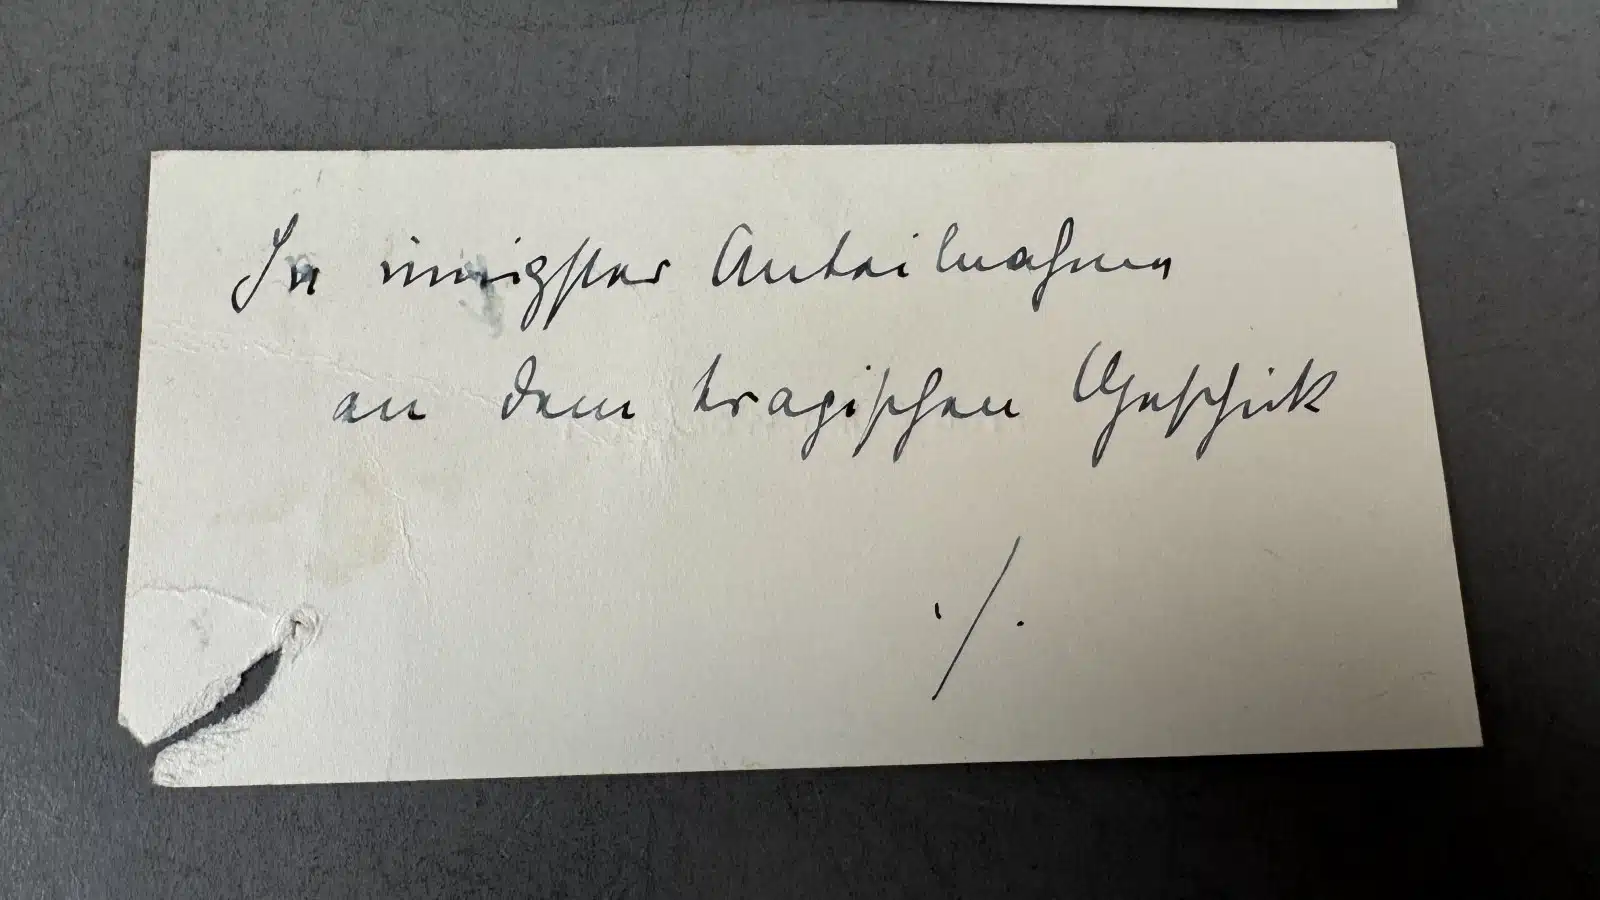 In innigster Anteilnahme
an dem tragischen Geschick
./.